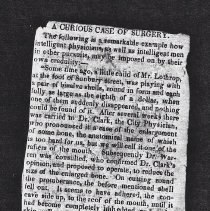 A CURIOUS CASE OF SURGERY.
The following is a remarkable example how
intelligent physicians, as well as intelligent men
in other pursuits, may be imposed on by their
own credulity:—
"Some time ago, a little child of Mr. Lothrop,
at the foot of Sunbury street, was playing with
a pair of bivalve shells, round in form and each
fully as large as the eighth of a dollar, when
one of them suddenly disappeared, and nothing
could be found of it. After several weeks there
was carried to Dr. Clark, the City Physician,
who pronounced it a case of the enlargement
of some bone, the anatomical name of which
is too hard for us, but we will call it one of the
rafters of the mouth. Subsequently Dr. War-
ren was consulted, who confirmed Dr. Clark's
opinion, and proposed to operate, to reduce the
size of the enlarged bone. On examining
the protuberance, the before mentioned shell
fell out. It seems to have adhered, the con-
cave side up, to the roof of the mouth, until it
had become completely imbedded